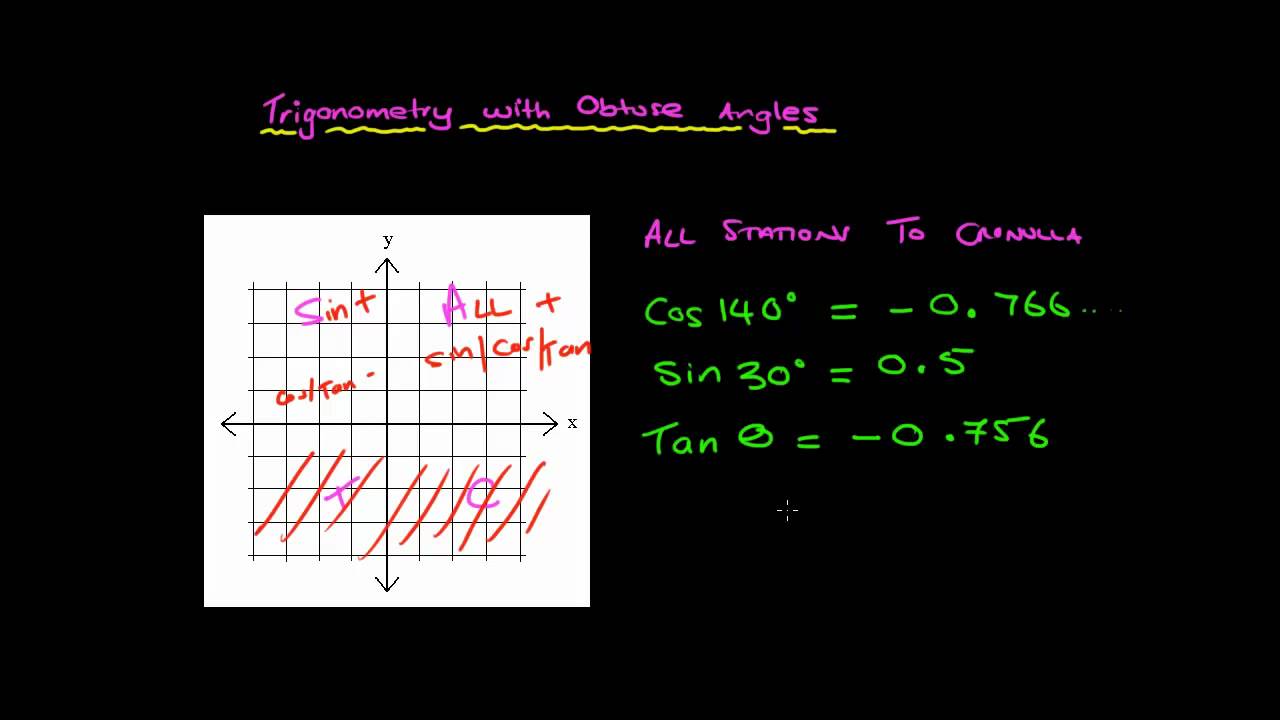 Trigonometry with Obtuse Angles
y
Sin +
ALL +
sin/cos/tan
cos/tan -
x
T
C
ALL STATIONS TO CRONULLA
Cos 140° = -0.766....
Sin 30° = 0.5
Tan θ = -0.756